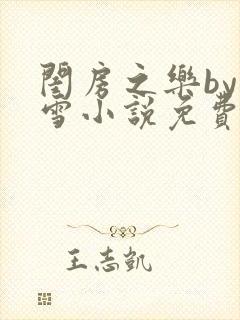 閨房之樂by
雪小說免費
王志凱